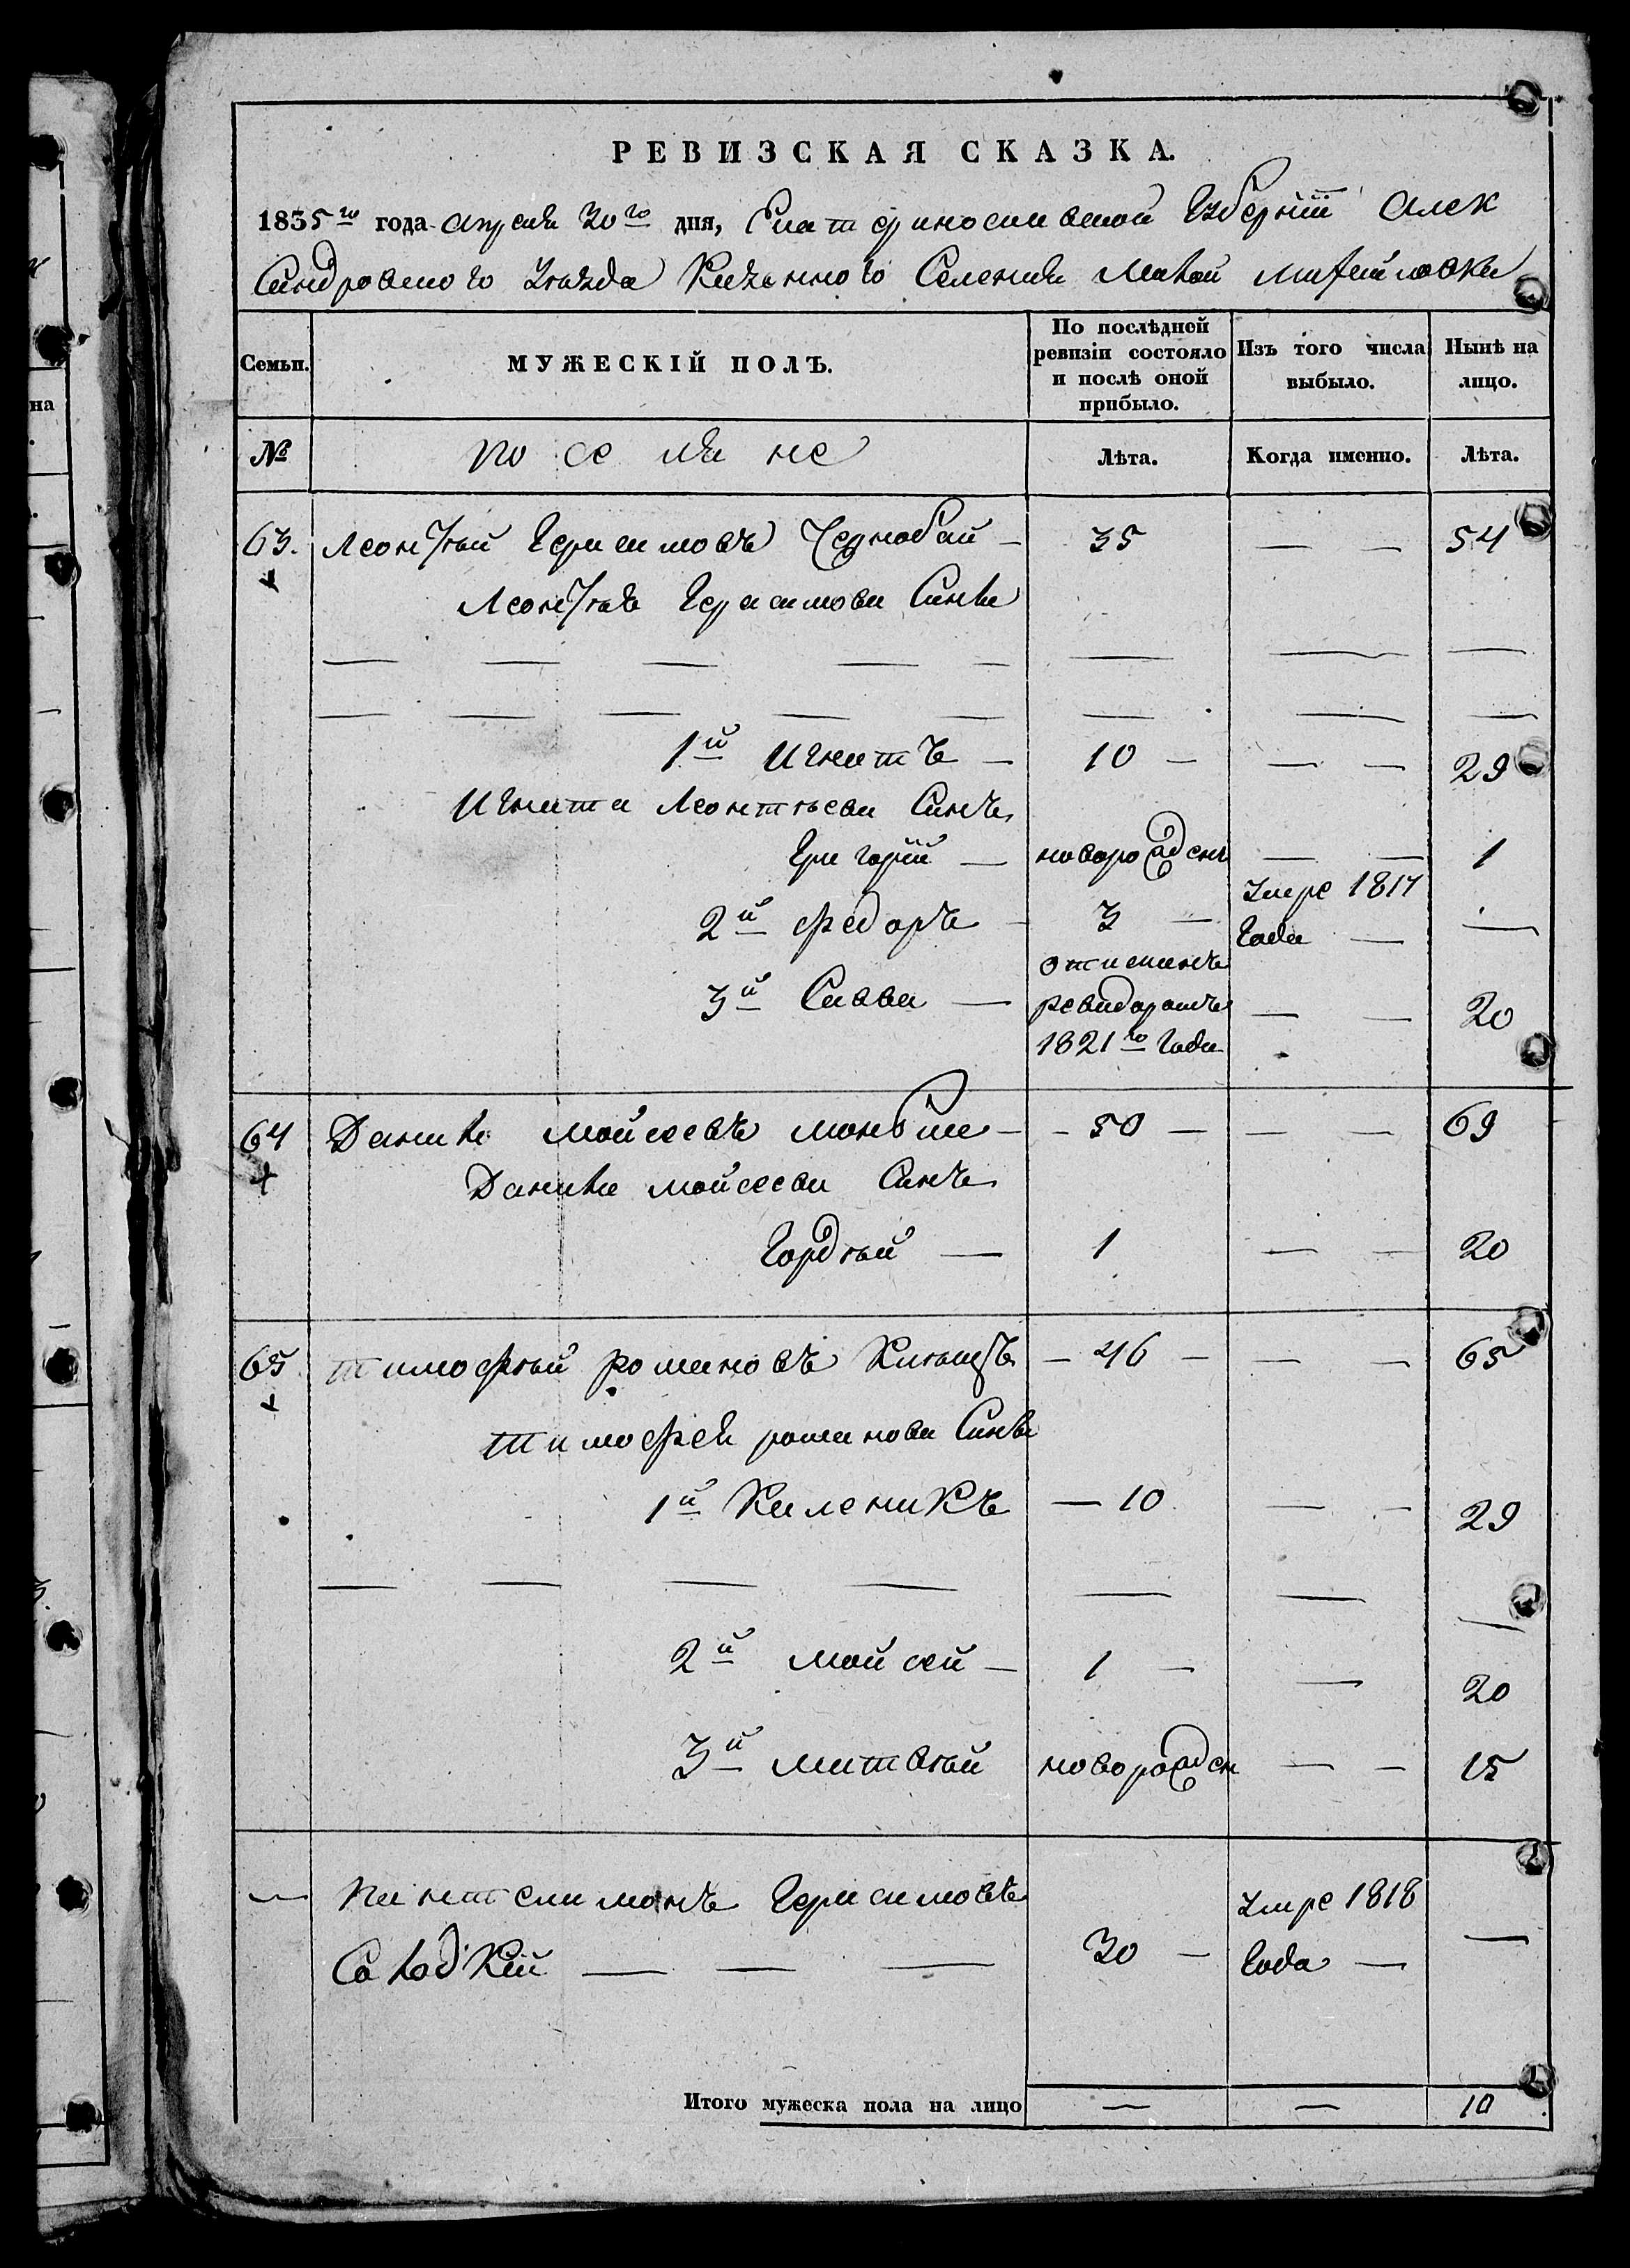 на
РЕВИЗСКАЯ СКАЗКА.
1835го года апреля 30го дня, Екатеринославской Губернiи Алек
сандровского Уѣзда Казенного Селенiя Малой Михайловки
Семьи. МУЖЕСКIЙ ПОЛЪ. По послѣдней ревизiи состояло и послѣ оной прибыло. Изъ того числа выбыло. Нынѣ на лицо.
№ поселяне Лѣта. Когда именно. Лѣта.
63. Леонтѣй Герасимовъ Чернобай — 35 — — 54
Леонтѣя Герасимова Сыны
1й Игнатъ — 10 — — — 29
Игната Леонтьева Сынъ
Григорiй — новорожденъ — — 1
2й Федоръ — 3 — Умре 1817 Года — —
3й Савва — отписанъ ревизоромъ 1821го Года — — 20
64 Данило Мойсеевъ — 50 — — — 69
Данила Мойсеева Сынъ
Гордѣй — 1 — — 20
65 Тимофѣй Романовъ — 46 — — — 65
Тимофея Романова Сыны
1й Каленикъ — 10 — — 29
2й Мойсей — 1 — — 20
3й Матвѣй новорожден — — 15
— Пантелимонъ Герасимовъ
Солодкiй — — — 30 — Умре 1818 Года — —
Итого мужеска пола на лицо — — 10